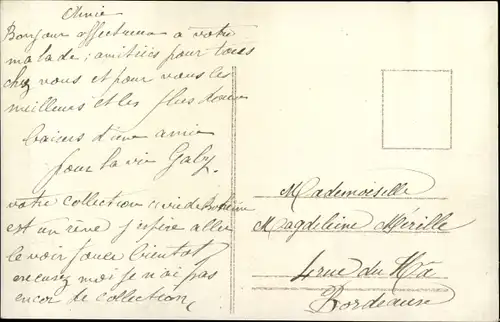 Amie
Bonjour affectueux a votre
malade ; amitiées pour tous
chez vous et pour vous les
meilleurs et les plus doux
baisers d'une amie
pour la vie Gaby.
votre collection
est un rêve j'espère aller
le voir bientot
excusez moi je n'ai pas
encor de collection,
Mademoiselle
Magdeleine Mérille
4 rue du Hâ
Bordeaux